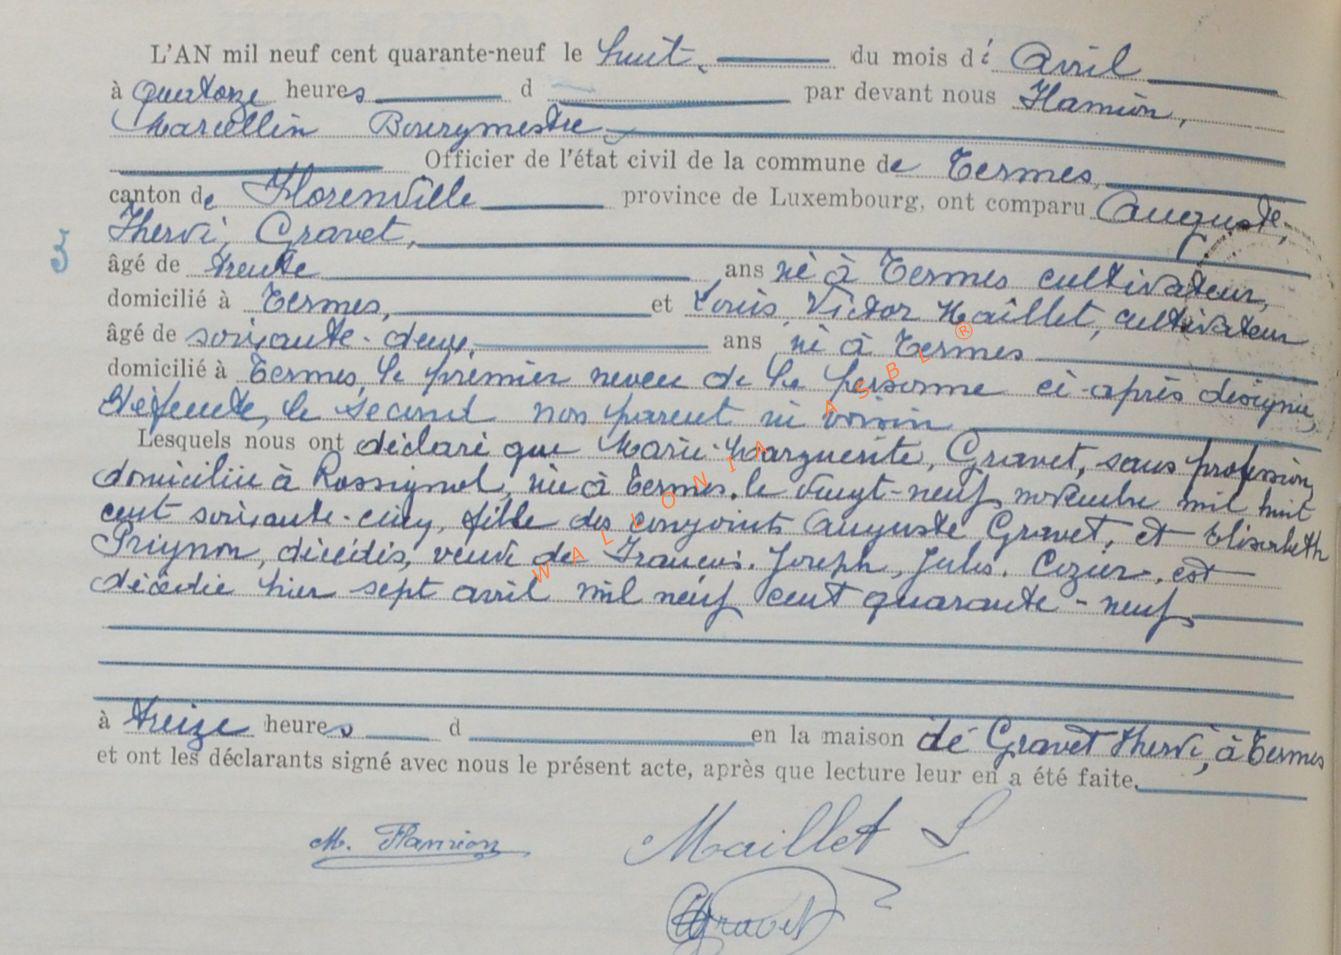 L'AN mil neuf cent quarante-neuf le huit du mois d' Avril
à quatorze heures d par devant nous Hamion,
Marcellin Bourgmestre
Officier de l'état civil de la commune de Termes,
canton de Florenville province de Luxembourg, ont comparu Auguste,
Thervi, Gravet,
3
âgé de trente ans né à Termes cultivateur,
domicilié à Termes, et Louis, Victor Maillet, cultivateur
âgé de soixante-deux, ans né à Termes
domicilié à Termes, le premier neveu de la personne ci-après désignée,
défunte, le second non parent ni voisin
Lesquels nous ont déclaré que Marie-Marguerite, Gravet, sans profession,
domiciliée à Rossignol, née à Termes, le vingt-neuf novembre mil huit
cent soixante-cinq, fille des conjoints Auguste Gravet, et Elisabeth
Prignon, décédés, veuve de François, Joseph, Jules, Cozier, est
décédée hier sept avril mil neuf cent quarante-neuf
à treize heures d en la maison de Gravet Thervi, à Termes
et ont les déclarants signé avec nous le présent acte, après que lecture leur en a été faite.
M. Hamion Maillet L
Gravet
WALLONIA ASBL ®